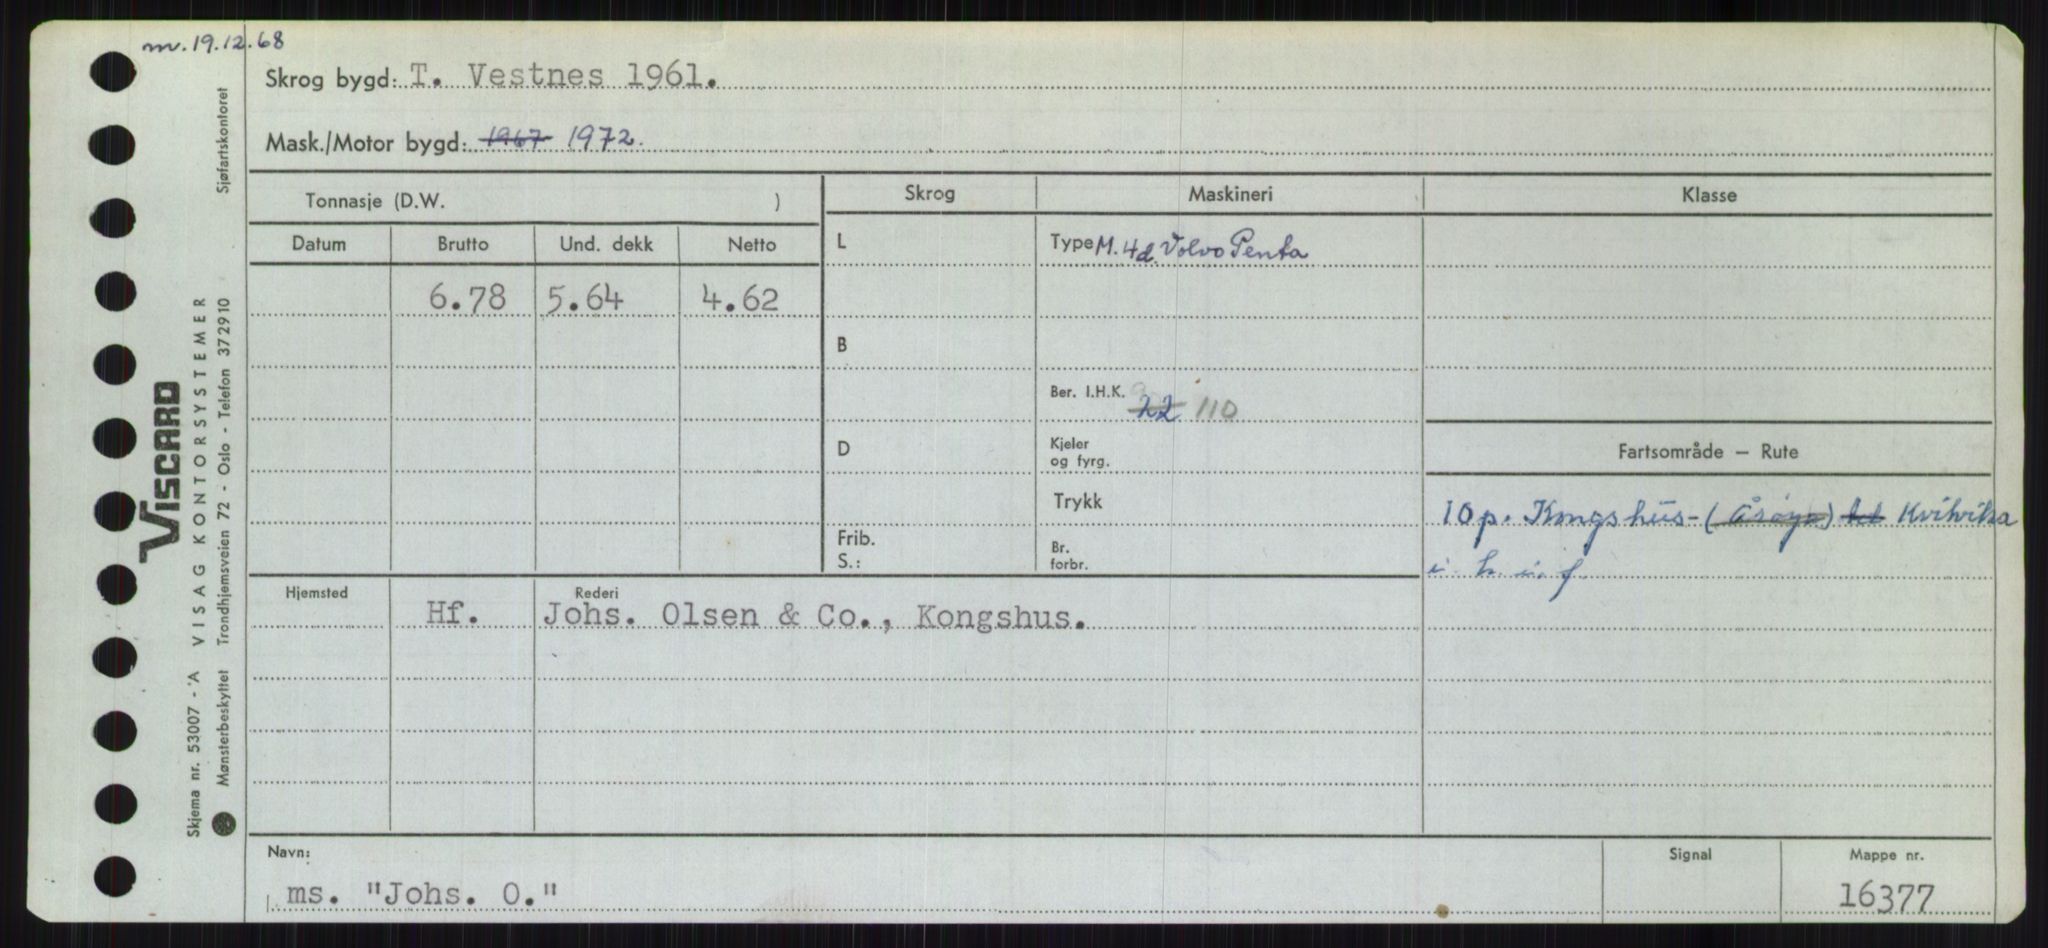 m. 19.12.68
Skrog bygd: T. Vestnes 1961.
Mask./Motor bygd: 1967 1972.
Tonnasje (D.W. )
Skrog Maskineri Klasse
Datum Brutto Und. dekk Netto
L Type M. 4d. Volvo Penta
6.78 5.64 4.62
B
Ber. I.H.K. 22 110
D Kjeler og fyrg.
Fartsområde — Rute
Trykk
10 p. Kongshus - (Årøya) Kvitvika
Frib.
S.:
Br. forbr.
i. h. i. f.
Hjemsted Rederi
Hf. Johs. Olsen & Co., Kongshus.
Navn: Signal Mappe nr.
ms. "Johs. O." 16377
Sjøfartskontoret
VISCARD
VISAG KONTORSYSTEMER
Trondhjemsveien 72 - Oslo - Telefon 372910
Skjema nr. 53007 - A
Mønsterbeskyttet